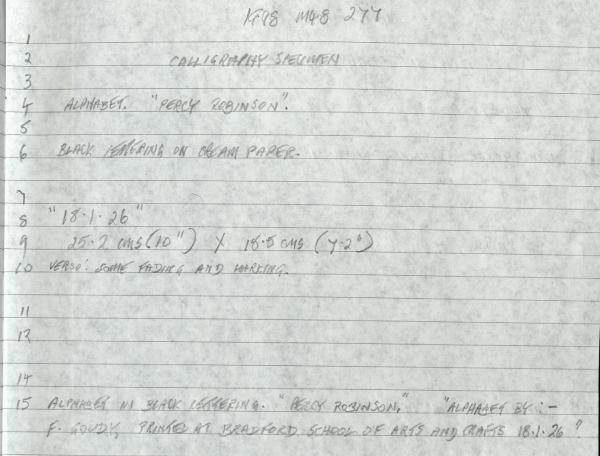 1998 M48 277
1
2 CALLIGRAPHY SPECIMEN
3
4 ALPHABET. "PERCY ROBINSON".
5
6 BLACK LETTERING ON CREAM PAPER.
7
8 "18.1.26"
9 25.2 CMS (10") X 18.5 CMS (7.2")
10 VERSO: SOME FADING AND MARKING.
11
12
14
15 ALPHABET IN BLACK LETTERING. "PERCY ROBINSON," "ALPHABET BY :-
F. GOUDY, PRINTED AT BRADFORD SCHOOL OF ARTS AND CRAFTS 18.1.26".